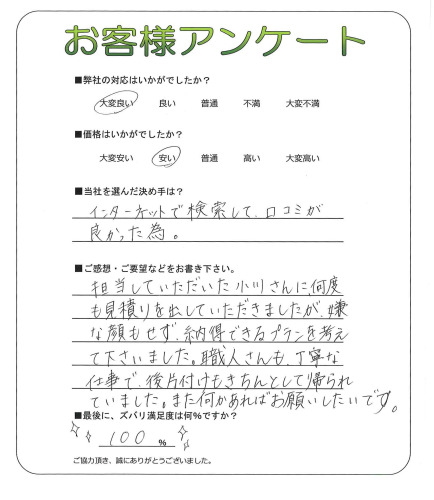 お客様アンケート
■弊社の対応はいかがでしたか？
大変良い 良い 普通 不満 大変不満
■価格はいかがでしたか？
大変安い 安い 普通 高い 大変高い
■当社を選んだ決め手は？
インターネットで検索して、口コミが
良かった為。
■ご感想・ご要望などをお書き下さい。
担当していただいた小川さんに何度
も見積りを出していただきましたが、嫌
な顔もせず、納得できるプランを考え
て下さいました。職人さんも、丁寧な
仕事で、後片付けもきちんとして帰られ
ていました。また何かあればお願いしたいです。
■最後に、ズバリ満足度は何%ですか？
100 %
ご協力頂き、誠にありがとうございました。